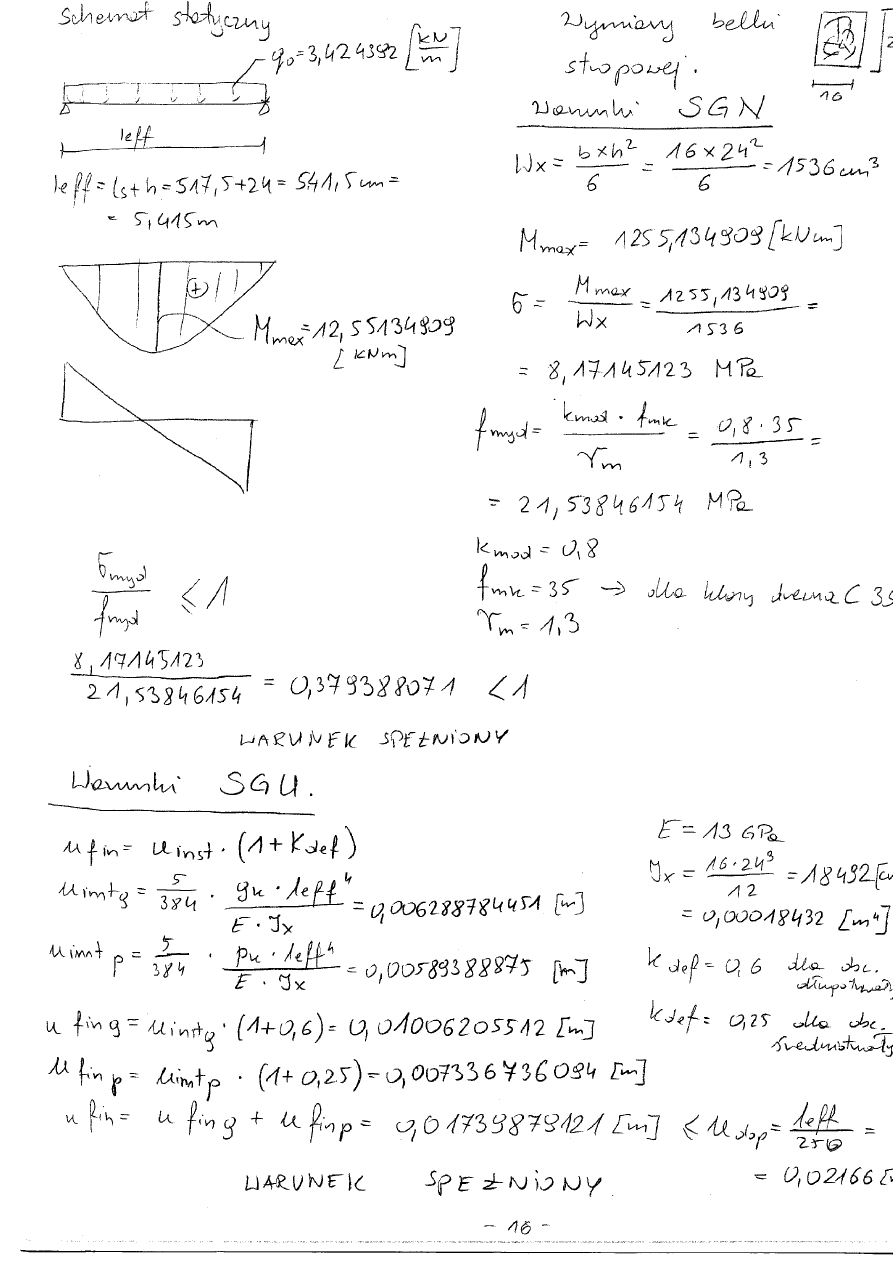 Schemat statyczny
q₀=3,424392 [kN/m]
leff
leff = ls+h = 517,5+24 = 541,5cm =
= 5,415m
Mmax=12,55134909
[kNm]
Wymiary belki
stropowej.
16
Warunki SGN
Wx = b×h²/6 = 16×24²/6 = 1536cm³
Mmax= 1255,134909 [kNcm]
σ = Mmax/Wx = 1255,134909/1536 =
= 8,17145123 MPa
fmyd= kmod · fmk/γm = 0,8·35/1,3 =
= 21,53846154 MPa
kmod = 0,8
fmk = 35 → dla klasy drewna C 35
γm = 1,3
σmyd/fmyd ≤ 1
8,17145123/21,53846154 = 0,379388071 < 1
WARUNEK SPEŁNIONY
Warunki SGU.
u fin= uinst · (1+Kdef)
uinstg = 5/384 · gk · leff⁴/E · Jx = 0,006288784451 [m]
uinst p = 5/384 · pk · leff⁴/E · Jx = 0,00589388875 [m]
u fin g = uinstg · (1+0,6) = 0,01006205512 [m]
u fin p = uinstp · (1+0,25) = 0,007336736094 [m]
u fin= u fin g + u fin p = 0,01739879121 [m] ≤ udop = leff/250 =
= 0,02166 [
E = 13 GPa
Jx = 16·24³/12 = 18432 [cm
= 0,00018432 [m⁴]
kdef = 0,6 dla obc.
długotrwał
kdef = 0,25 dla obc.
średniotrwały
WARUNEK SPEŁNIONY
- 16 -